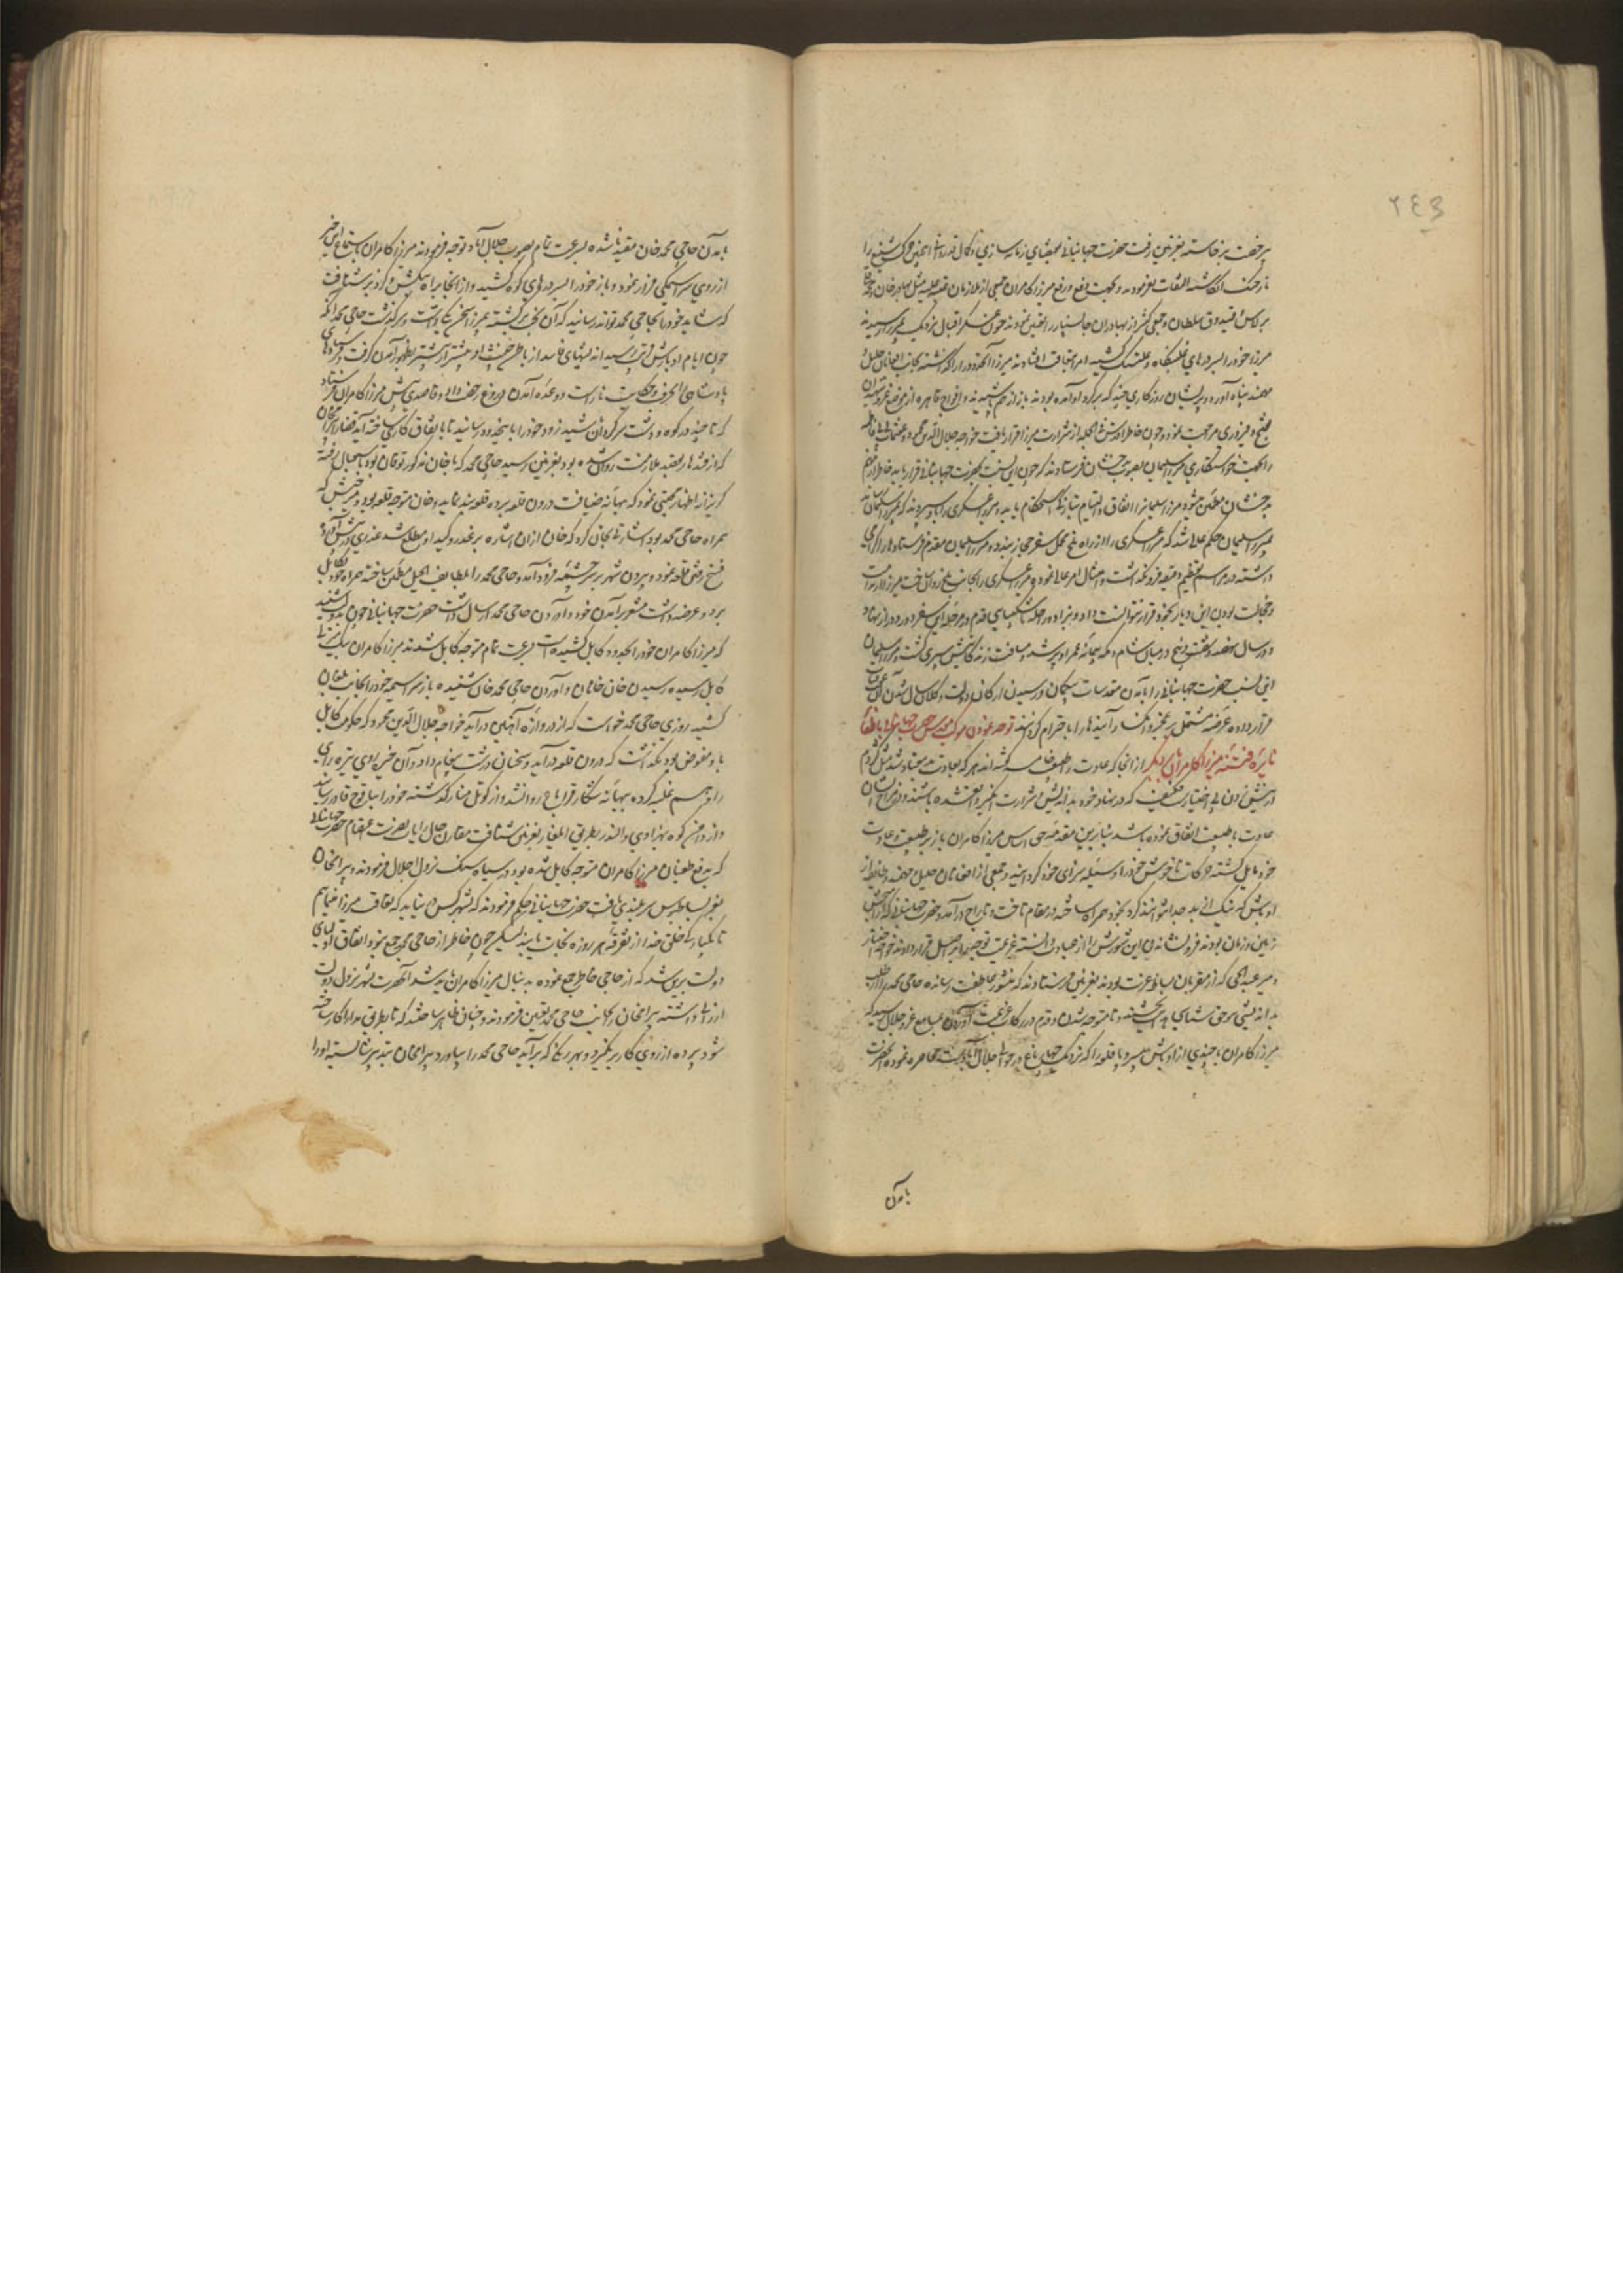 ٢٤٣
برخصت برخاسته بغزنین رفت حضرت جهانبانی بمقتضای زمانه سازی و کمال
انگاشته التفات نفرمودند و بجهت دفع و رفع میرزا کامران جمعی از ملازمان عتبه علیه مثل بهادرخان و
برلاس و قندوق سلطان و جمعی کثیر از بهادران جانسپار را تعیین نمودند چون عساکر اقبال نزدیک بمیرزا رسیدند
میرزا خود را بسر درهای علینگار و علیشنگ کشید امرا بتعاقب افتادند میرزا آنحدود را گذاشته بجانب افغانان خلیل
مهمند پناه آورد و پریشان روزگاری چند که برگرد او آمده بودند باز از هم پاشیدند و افواج قاهره از
بفتح و فیروزی مراجعت نمود و چون خاطر اقدس فی الجمله از شرارت میرزا قرار یافت خواجه جلال الدین محمود و
را بجهت خواستگاری میرزا سلیمان بصوب بدخشان فرستادند که چون این نسبت بحضرت جهانبانی قرار یابد خاطر
بدخشان مطمئن شود و میرزا سلیمان را اتفاق و التیام بتازگی استحکام یابد و میرزا عسکری را باو سپردند که بمیرزا سلیمان
بمیرزا سلیمان حکم عالی شد که میرزا عسکری را از راه بلخ محمل سفر حجاز بندد و میرزا سلیمان مقدم فرستادها را گرامی
داشته در مراسم تعظیم دقیقه فرو نگذاشت و امتثال امر عالی نموده میرزا عسکری را بجانب بلخ روان ساخت میرزا
و خجالت بودن این دیار بخود قرار نتوانست داد و بی زاد و راحله شکیبائی قدم در مرحله این سفر دور دراز نهاد
و در سال نهصد و شصت و پنج در میان شام و مکه پیمانه عمر او پر شد و مسافت زندگانیش سپری گشت و میرزا سلیمان
این نسبت حضرت جهانبانی را بآمدن مقدسات بیگمان و رسیدن ارکان دولت و کلان سال شدن آن
قرار داده عریضه مشتمل بر عجز و انکسار آیندها را باحترام گردانید توجه نمودن موکب مقدس حضرت جهانبانی باطفاء
نایره فتنه میرزا کامران بار دیگر از آنجا که عادت را طبیعت خامسه گفته اند هر که بعادت بد معتاد شد مثل کژدم
در نیش زدن بی اختیار است که در نهاد خود بداندیش و شرارت انگیز واقع شده باشند و در مزاج ایشان
عادت با طبیعت اتفاق نموده باشد بنابرین مقدمه حق اساس میرزا کامران باز بر طبیعت و عادت
خود مایل گشته حرکات ناخوش خود را وسیله سزای خود گردانید و جمعی از افغانان خلیل مهمند و
اوباش که نیک از بد جدا نتوانند کرد بخود همراه ساخته در مقام تاخت و تاراج درآمد و حضرت جهانبانی که
زمین و زمان بودند فرو نشاندن این شورش را از عبادت دانسته عزیمت توجه بدانصوب قرار دادند خواجه اختیار
و میر عبدالحی که از مقربان بساط عزت بودند بغزنین فرستادند که منشور عاطفت رسانده حاجی محمد را
بداندیشی و حق ناشناسی و تا متوجه شدن و قدم در رکاب عزیمت آوردن بمسامع عز و جلال رسید که
میرزا کامران با چندی از اوباش بر سر قلعه را که نزدیک چهار باغ در حوالی جلال آباد است محاصره نموده آنحضرت
بآمدن
بآمدن حاجی محمد خان مقید ناشده بسرعت تمام بصوب جلال آباد توجه فرمودند میرزا کامران باستماع این خبر
از روی سراسیمگی فرار نمود و باز خود را بسر درهای کوه کشید و از آنجا براه بنگش و گردیز شتافت
که شاید خود را بحاجی محمد تواند رسانید که آن بخت برگشته بمیرزا سخن یکی داشت و سرگذشت حاجی محمد آنکه
چون ایام ادبارش قریب رسید اندیشهای فاسد از باطن خبیث او بیشتر از پیشتر بظهور آمدن گرفت و
پادشاهی را بحرف و حکایت ناراست و وعده آمدن دروغ رخصت داد و قاصدی پیش میرزا کامران فرستاد
که تا چند در کوه و دشت سرگردان باشید زود خود را باینحدود رسانید تا باتفاق کاری ساخته آید قضا را بیرام خان
که از قندهار بقصد ملازمت روان شده بود بغزنین رسید حاجی محمد که با خان مذکور توقان بود باستقبال رفته
گریزانه اظهار محبتی نمود که بهانه ضیافت درون قلعه برده قلعه بند نماید و خان متوجه قلعه بود و میر حبش که
همراه حاجی محمد بود اشارتی بخان کرد که خان از آن اشاره بر غدر و کید او مطلع شد عذری در پیش آورده
فسخ رفتن قلعه نمود و بیرون شهر بر سر چشمه فرود آمد و حاجی محمد را بلطایف الحیل مطمئن ساخته همراه خود بکابل
برد و عرضه داشت مشعر بر آمدن خود و آوردن حاجی محمد ارسال داشت حضرت جهانبانی چون شنیدند
که میرزا کامران خود را بحدود کابل کشیده است بسرعت تمام متوجه کابل شدند میرزا کامران
کابل رسیده رسیدن خان خانان و آوردن حاجی محمد خان شنیده باز سراسیمه خود را بجانب لمغان
کشید روزی حاجی محمد خواست که از دروازه آهنین درآید خواجه جلال الدین محمود که حکومت کابل
باو مفوض بود نگذاشت که درون قلعه درآید و سخنان درشت پیغام داد و آن خیره روی تیره رای
را وهم غلبه کرده ببهانه شکار قراباغ روان شد و از کوتل منار گذشته خود را ببابا قوچقار رسانید
و از دامن کوه بهزادی و للندر بطریق ایلغار بغزنین شتافت مقارن حال رایات نصرت اعتصام حضرت جهانبانی
که بدفع طغیان میرزا کامران متوجه کابل شده بود در سیاه سنگ نزول اجلال فرمودند و بیرام خان
بعز بساط بوس سربلندی یافت حضرت جهانبانی حکم فرمودند که بشهر کس نیاید که تعاقب میرزا نماییم
تا یکبارگی خلق خدا از تفرقه هر روزه نجات یابند لیکن چون خاطر از حاجی محمد جمع نبود اتفاق اولیای
دولت برین شد که از حاجی خاطر جمع نموده بدنبال میرزا کامران باید شد آنحضرت بشهر نزول دولت
ارزانی داشته بیرام خان را بجانب حاجی محمد تعین فرمودند و چنان ظاهر ساختند که تا بطریق مدارا کار ساخته
شود پرده از روی کار برنگیرد و بهر رنگی که برآید حاجی محمد را بیاورد و بیرام خان بتدبیر شایسته او را